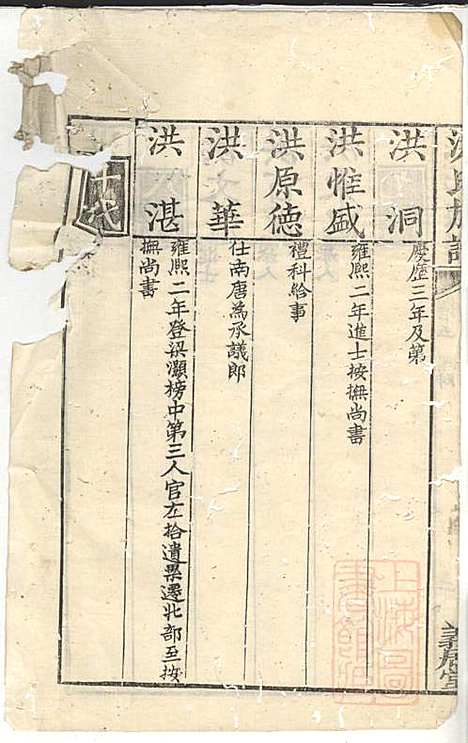 洪氏族譜
義居堂
洪洞
慶歷三年及第
洪惟盛
雍熙二年進士按撫尚書
洪原德
禮科給事
洪華
仕南唐為承議郎
洪湛
雍熙二年登梁灝榜中第三人官左拾遺累遷北部至按
撫尚書
十代
上海圖
書館藏